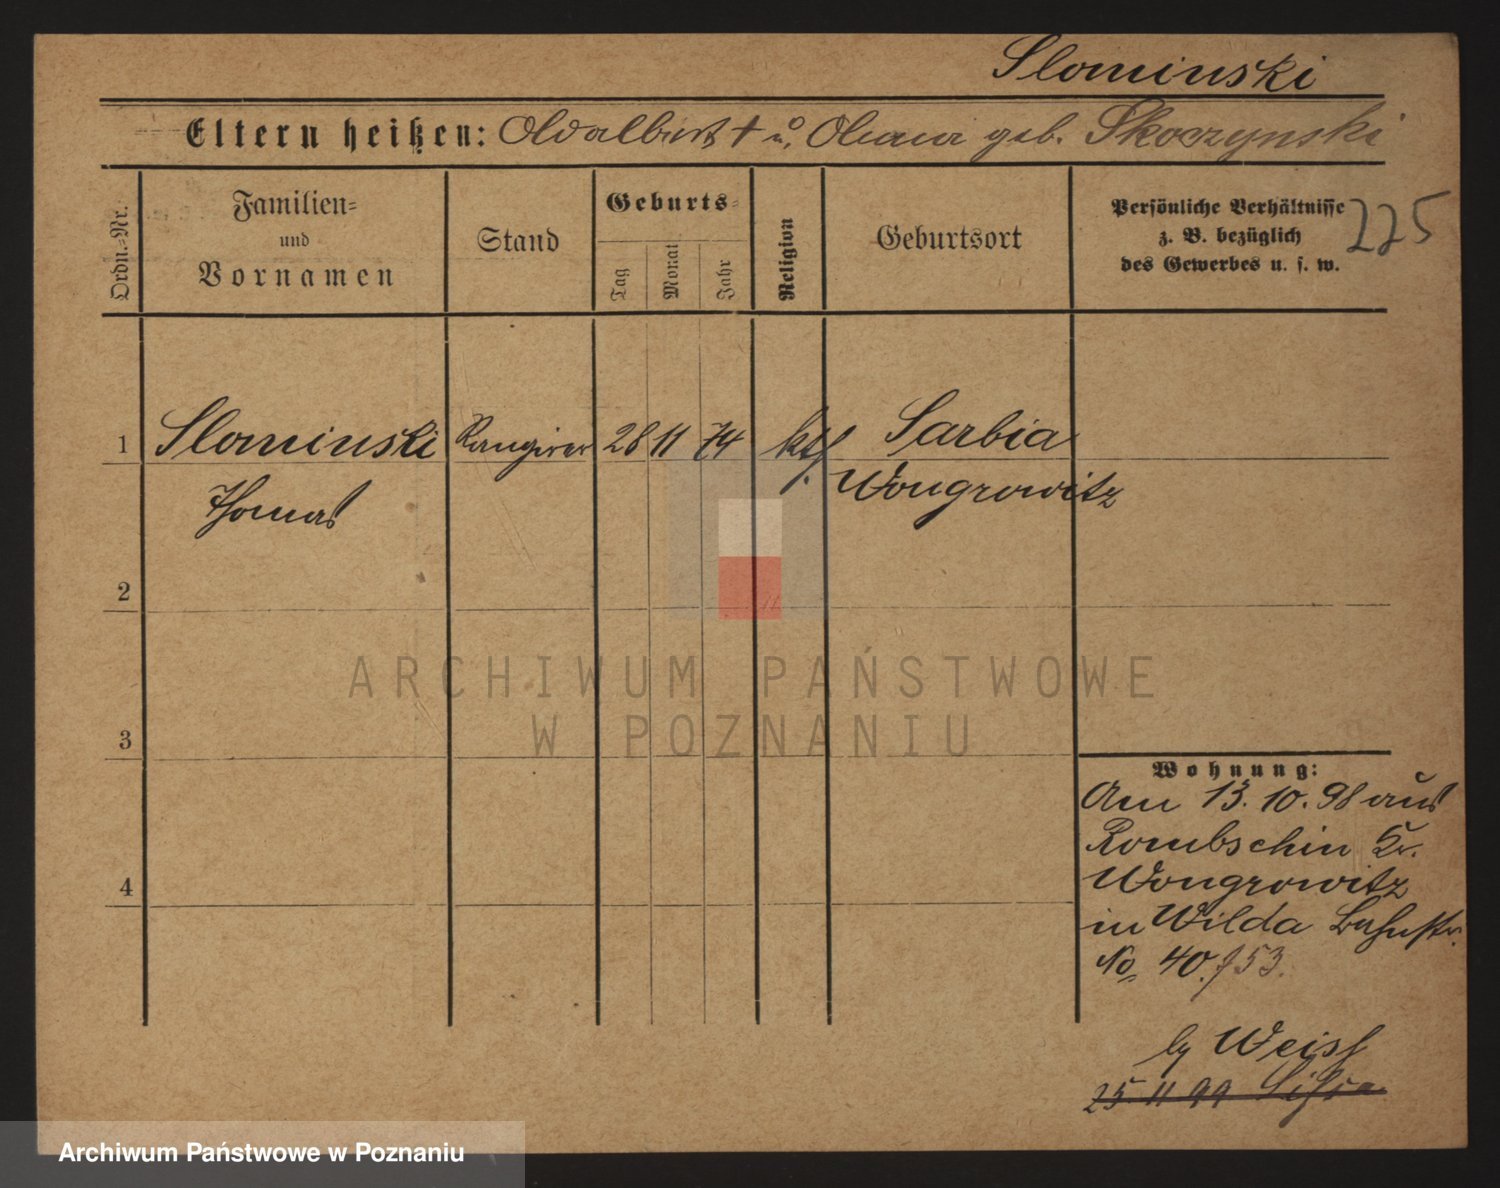 Slominski
Eltern heißen: Adalbert † u. Anna geb. Skoczynski
Ordn.-Nr.
Familien-
und
Vornamen
Stand
Geburts-
Tag
Monat
Jahr
Religion
Geburtsort
Persönliche Verhältnisse
z. B. bezüglich
des Gewerbes u. s. w.
225
1 Slominski Rangirer 28 11 74 kth. Sarbia
Thomas Wongrowitz
2
3
4
Wohnung:
Am 13. 10. 98 aus
Rombschin Kr.
Wongrowitz
in Wilda Bahnstr.
No 40./53.
by Weiss
25 11 99
ARCHIWUM PAŃSTWOWE
W POZNANIU
Archiwum Państwowe w Poznaniu